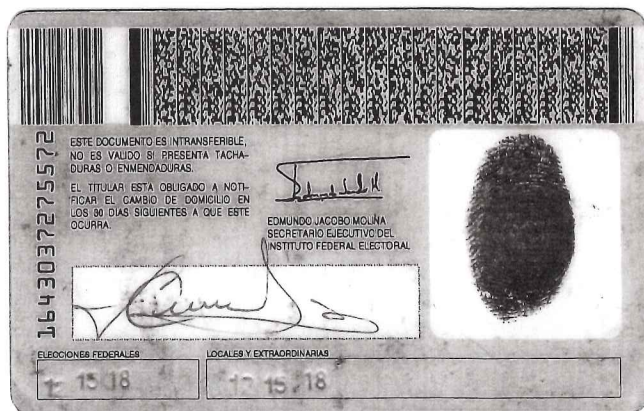 1643037275572
ESTE DOCUMENTO ES INTRANSFERIBLE,
NO ES VALIDO SI PRESENTA TACHA-
DURAS O ENMENDADURAS.
EL TITULAR ESTA OBLIGADO A NOTI-
FICAR EL CAMBIO DE DOMICILIO EN
LOS 30 DIAS SIGUIENTES A QUE ESTE
OCURRA.
EDMUNDO JACOBO MOLINA
SECRETARIO EJECUTIVO DEL
INSTITUTO FEDERAL ELECTORAL
ELECCIONES FEDERALES
15 18
LOCALES Y EXTRAORDINARIAS
15 18